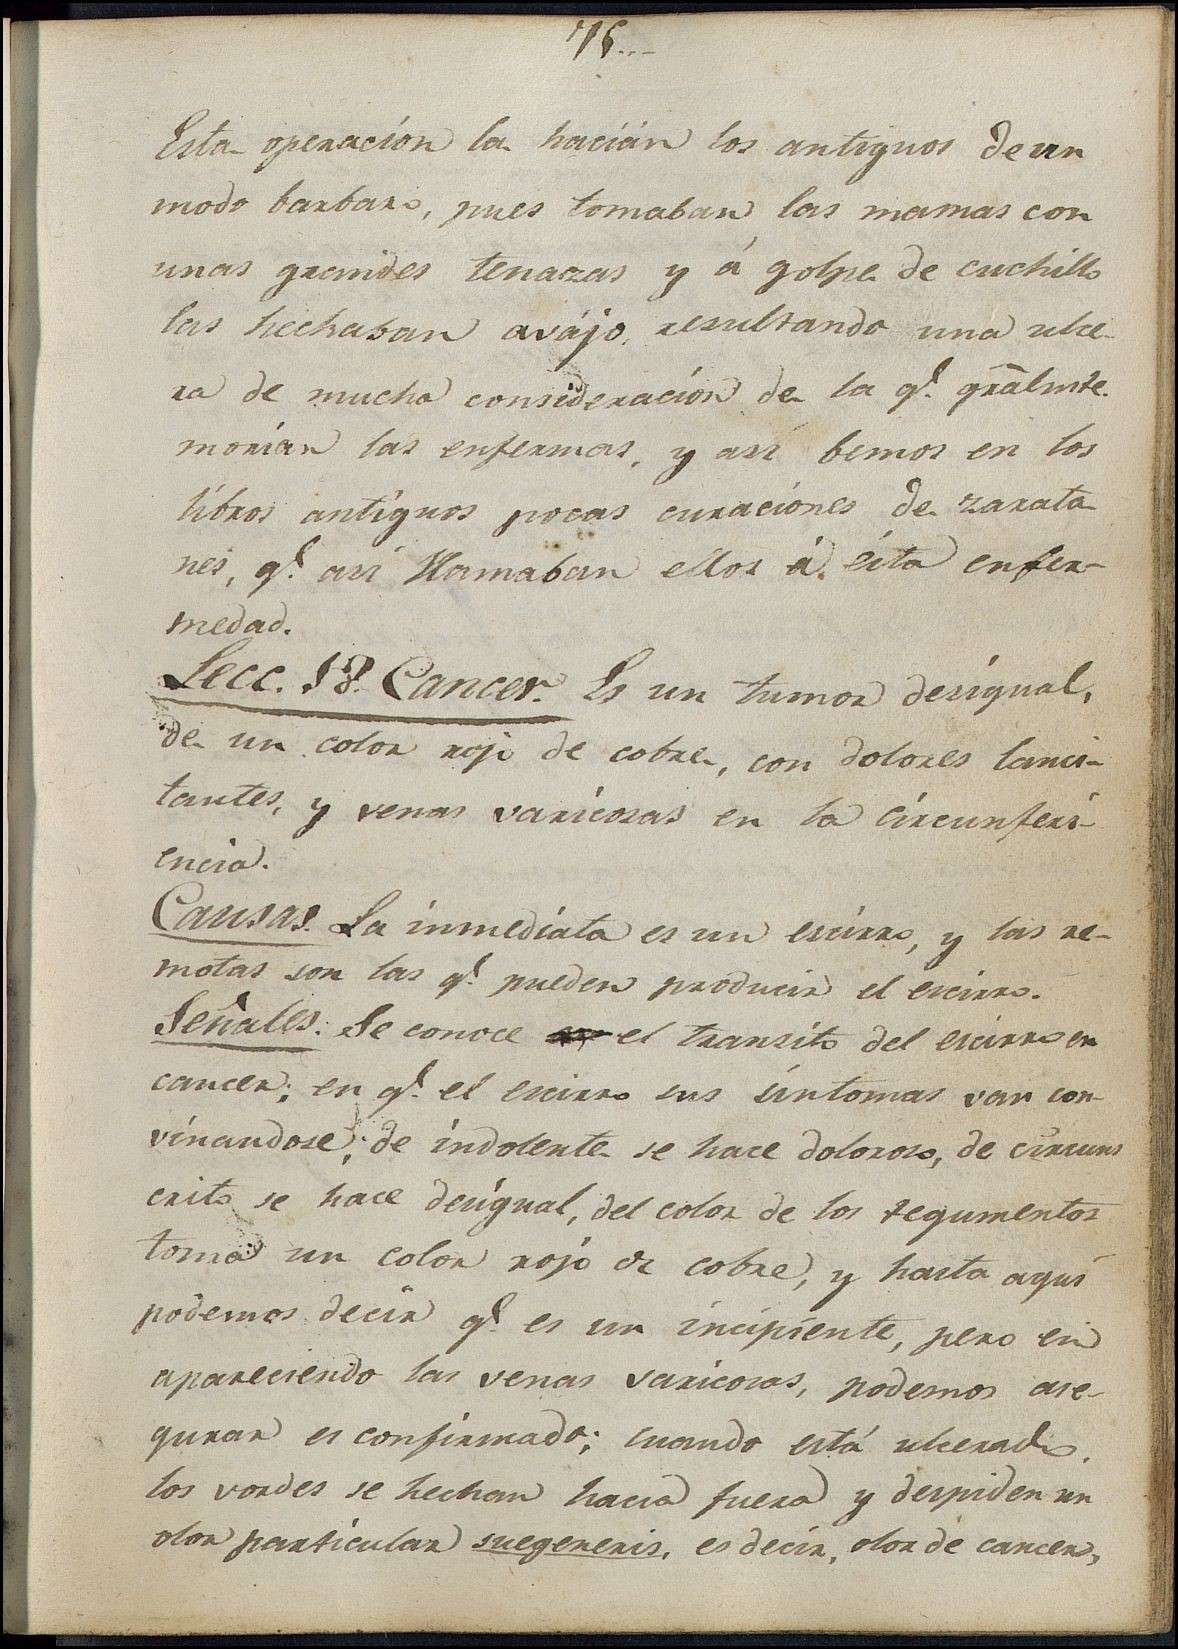 75...
Esta operación la hacián los antiguos de un
modo barbaro, pues tomaban las mamas con
unas grandes tenazas y á golpe de cuchillo
las hechaban avájo, resultando una ulce-
ra de mucha consideración de la q.e grãlmte.
morian las enfermas, y asi bemos en los
libros antiguos pocas curaciones de zarata
nes, q.e asi llamaban ellos á esta enfer-
medad.
Lecc. 18. Cancer. Es un tumor desigual,
de un color rojo de cobre, con dolores lanci-
tantes, y venas varicosas en la circunferi-
encia.
Causas. La inmediata es un escirro, y las re-
motas son las q.e pueden producir el escirro.
Señales. Se conoce el transito del escirro en
cancer; en q.e el escirro sus sintomas van con-
vinandose; de indolente se hace doloroso, de circuns
crito se hace desigual, del color de los tegumentos
toma un color rojo de cobre, y hasta aqui
podemos decir q.e es un incipiente, pero en
apareciendo las venas varicosas, podemos ase-
gurar es confirmado; cuando está ulcerado,
los vordes se hechan hacia fuera y despiden un
olor particular suegeneris, es decir, olor de cancer,